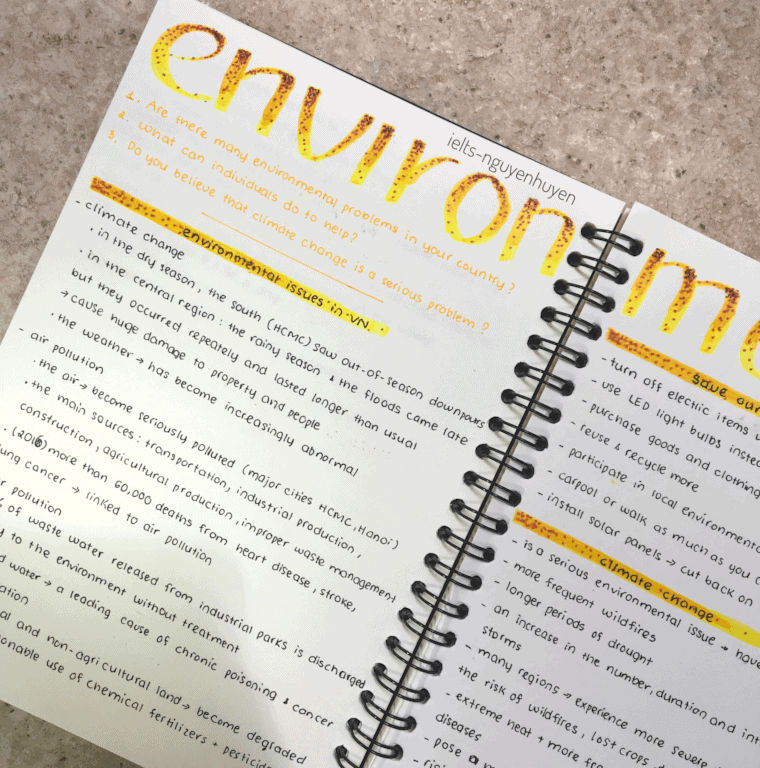 environ
ielts-nguyenhuyen
1. Are there many environmental problems in your country?
2. What can individuals do to help?
3. Do you believe that climate change is a serious problem?
environmental issues in VN.
- climate change
• in the dry season, the south (HCMC) saw out-of-season downpours
• in the central region: the rainy season & the floods came late
but they occurred repeately and lasted longer than usual
→ cause huge damage to property and people
• the weather → has become increasingly abnormal
- air pollution
• the air → become seriously polluted (major cities HCMC, Hanoi)
• the main sources: transportation, industrial production,
construction, agricultural production, improper waste management
• (2016) more than 60,000 deaths from heart disease, stroke,
lung cancer → linked to air pollution
pollution
of waste water released from industrial parks is discharged
to the environment without treatment
water → a leading cause of chronic poisoning & cancer
and non-agricultural land → become degraded
use of chemical fertilizers +
me
save our
- turn off electric items
- use LED light bulbs
- purchase goods and clothing
- reuse & recycle more
- participate in local
- carpool or walk as much as you
- install solar panels → cut back on
climate change
- is a serious environmental issue → have
- more frequent wildfires
- longer periods of drought
- an increase in the number, duration and
storms
- many regions → experience more severe
the risk of wildfires, lost crops,
- extreme heat + more
diseases
- pose a